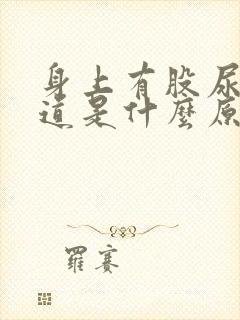 身上有股尿
道是什麼原
羅賽